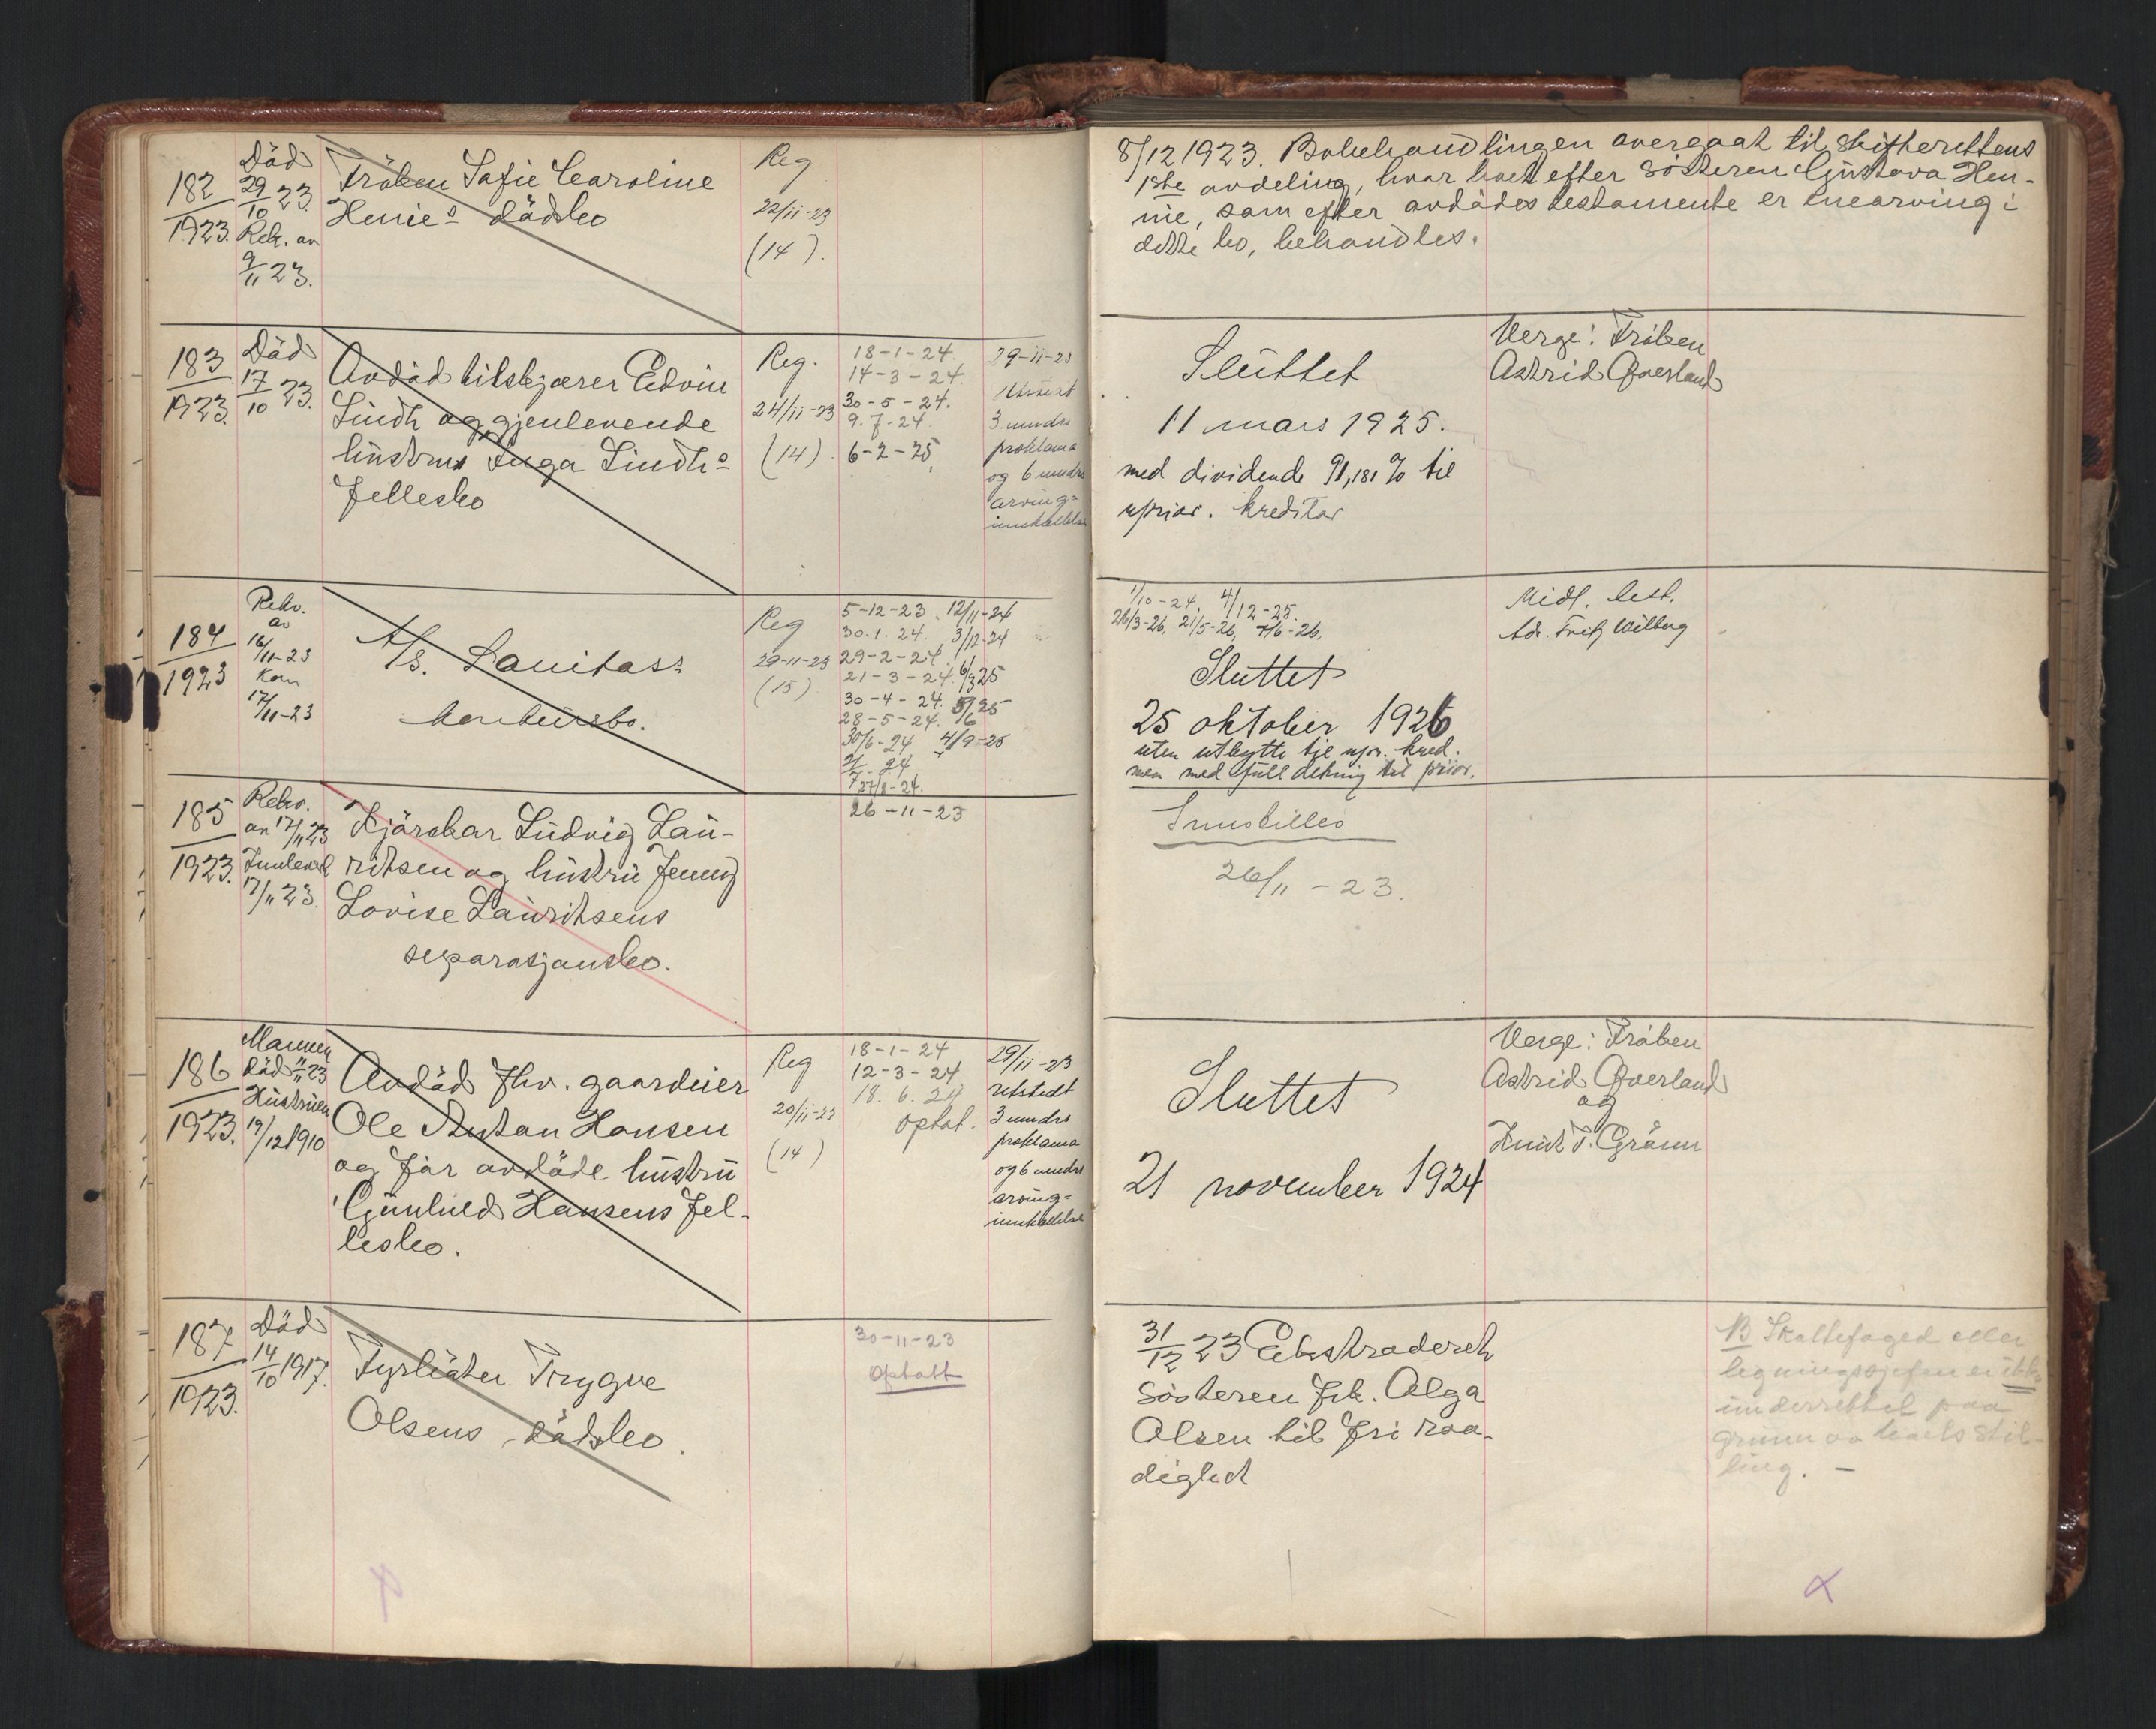 182
1923.
Död
29/10 23.
Rekv. av
9/11 23.
Fröken Sofie Caroline
Henies dödsbo
Reg
22/11-23
(14).
8/12 1923. Bobehandlingen overgaat til skifterettens
1ste avdeling, hvor boet efter søsteren Gustava Hen-
nie, som efter avdødes testamente er enearving i
dette bo, behandles.
183
1923.
Död
17/10 23.
Avdöd bilskjører Edvin
Lindh og gjenlevende
hustru Inga Lindhs
Fellesbo
Reg.
24/11-23
(14).
18-1-24.
14-3-24.
30-5-24.
9.7-24.
6-2-25.
29-11-23
3 mndrs
proklama
og 6 mndrs
arving-
innkallelse
Sluttet
11 mars 1925.
med dividende 91,181% til
uprior. kreditor
Verge: Fröken
Astrid Qverland
184
1923
Rekv.
av
16/11-23
Kon
17/11-23
A/S. Sanitass
konkursbo.
Reg
29-11-23
(15)
5-12-23. 12/11-24
30.1.24. 3/12-24
29-2-24.
21-3-24. 6/3 25
30-4-24. 5/6 25
28-5-24.
30/6-24 4/9-25
2/7-24
27/8-24.
1/10-24, 4/12-25.
26/3-26, 21/5-26, 7/6-26.
Sluttet
25 oktober 1926
uten utbytte til upr. kred.
men med full dekning til prior.
Midl. best.
Adv. Fritz Wilberg
185
1923.
Rekv.
av 17/11 23
Innlevd
17/11 23.
Kjörekar Ludvig Lau-
ritsen og hustru Jenny
Lovise Lauritsens
separasjonsbo.
26-11-23
Innstilles
26/11-23.
186
1923.
Mannen
död 11/11 23
Hustruen
19/12 1910
Avdöd fhv. gaardeier
Ole Anton Hansen
og för avdöde hustru
Gunhild Hansens fel-
lesbo.
Reg
20/11-23
(14)
18-1-24
12-3-24
18.6.24
optat.
29/11-23
utstedt
3 mndrs
proklama
og 6 mndrs
arving-
innkallelse
Sluttet
21 november 1924
Verge: Fröken
Astrid Qverland
og
Knut T. Grönn
187
1923.
Död
14/10 1917.
Fyrböter Trygve
Olsens dödsbo.
30-11-23
optatt
31/12 23 Ekstraderet
søsteren frk. Olga
Olsen til fri raa-
dighet
NB Skattefoged eller
ligningssjefen er ikke
underrettet paa
grunn av boets stil-
ling. -